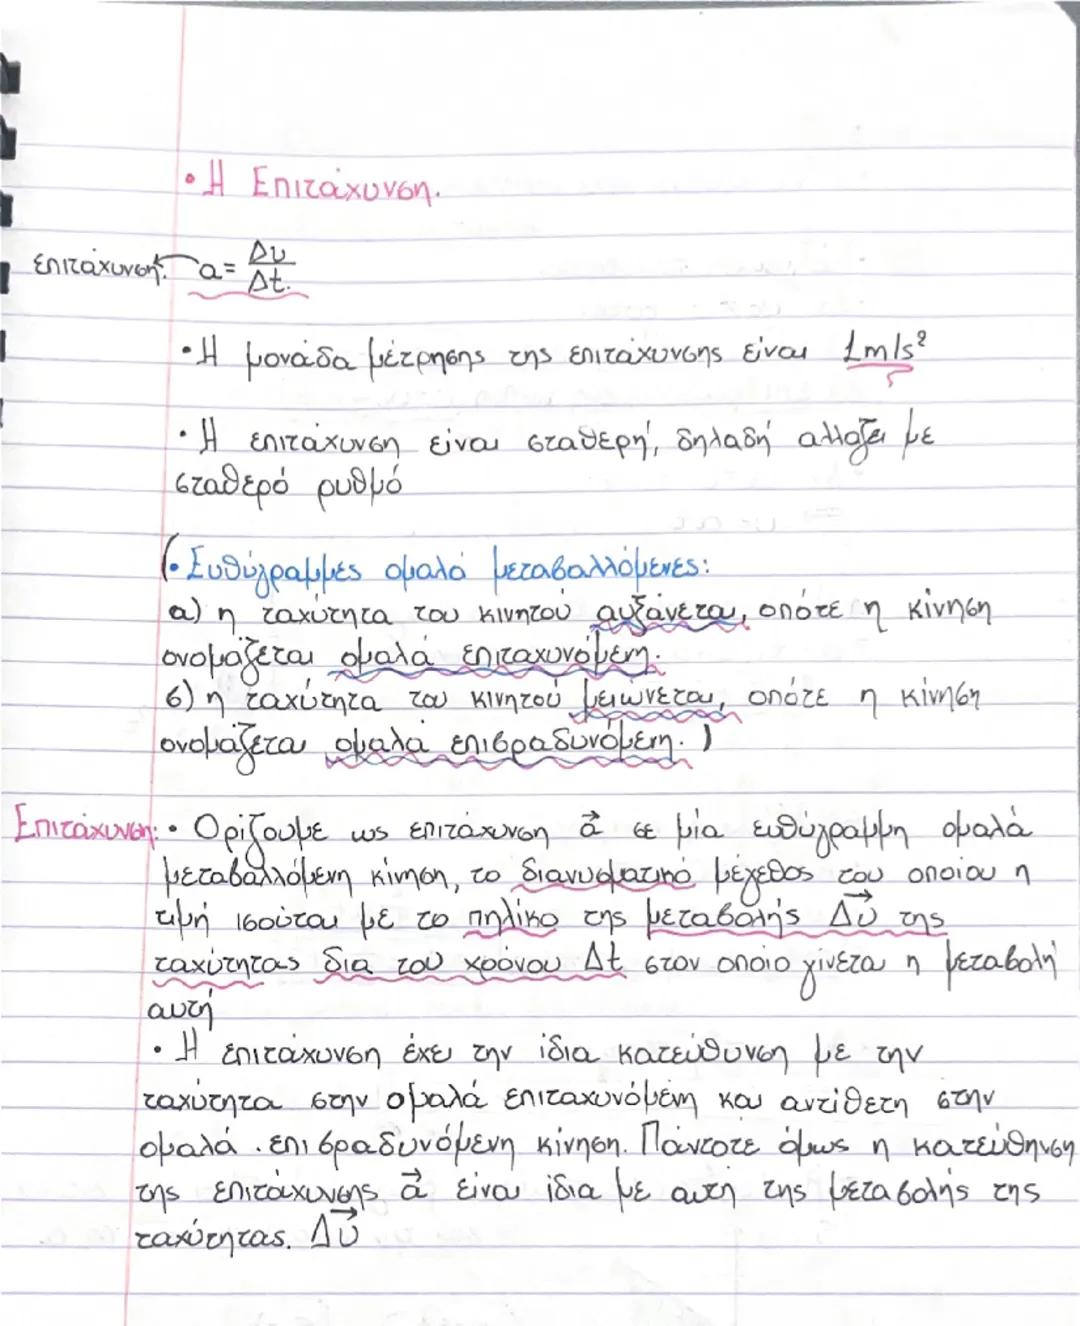 • Η Επιτάχυνση.
επιτάχυνση: a = Δυ
Δt.
• Η μονάδα μέτρησης της επιτάχυνσης είναι 1m/s²
• Η επιτάχυνση είναι σταθερή, δηλαδή αλλάζει με
σταθερό ρυθμό
(• Ευθύγραμμες ομαλά μεταβαλλόμενες:
α) η ταχύτητα του κινητού αυξάνεται, οπότε η κίνηση
ονομάζεται ομαλά επιταχυνόμενη.
β) η ταχύτητα του κινητού μειώνεται, οπότε η κίνηση
ονομάζεται ομαλά επιβραδυνόμενη. )
Επιτάχυνση: • Ορίζουμε ως επιτάχυνση a⃗ σε μία ευθύγραμμη ομαλά
μεταβαλλόμενη κίνηση, το διανυσματικό μέγεθος του οποίου η
τιμή ισούται με το πηλίκο της μεταβολής Δυ⃗ της
ταχύτητας δια του χρόνου Δt στον οποίο γίνεται η μεταβολή
αυτή
• Η επιτάχυνση έχει την ίδια κατεύθυνση με την
ταχύτητα στην ομαλά επιταχυνόμενη και αντίθετη στην
ομαλά . επιβραδυνόμενη κίνηση. Πάντοτε όμως η κατεύθηνση
της επιτάχυνσης a⃗ είναι ίδια με αυτή της μεταβολής της
ταχύτητας. Δυ⃗